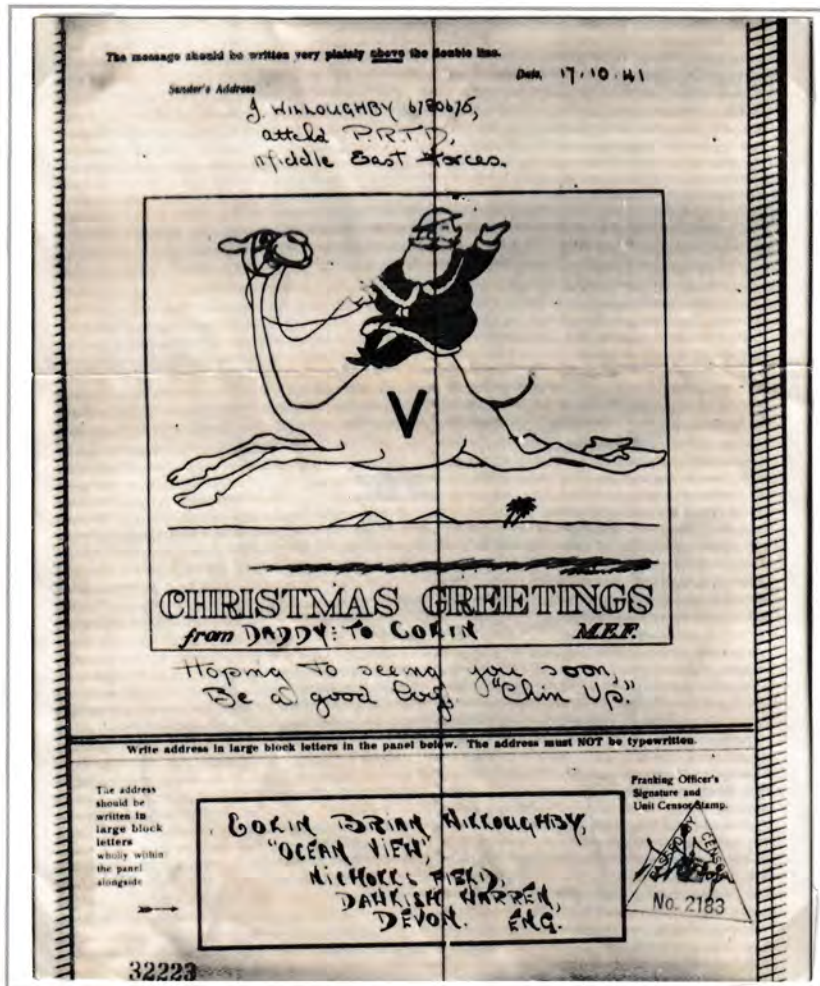 The message should be written very plainly above the double line.
Sender's Address
Date, 17.10.41
J. WILLOUGHBY 6780675,
attchd P.R.T.D,
Middle East Forces.
V
CHRISTMAS GREETINGS
from DADDY: TO COLIN M.E.F.
Hoping to seeing you soon,
Be a good boy, "Chin Up."
Write address in large block letters in the panel below. The address must NOT be typewritten.
The address
should be
written in
large block
letters
wholly within
the panel
alongside
COLIN BRIAN WILLOUGHBY,
"OCEAN VIEW",
NICHOLLS FIELD,
DAWLISH WARREN,
DEVON. ENG.
Franking Officer's
Signature and
Unit Censor Stamp.
PASSED BY CENSOR
No. 2183
32223